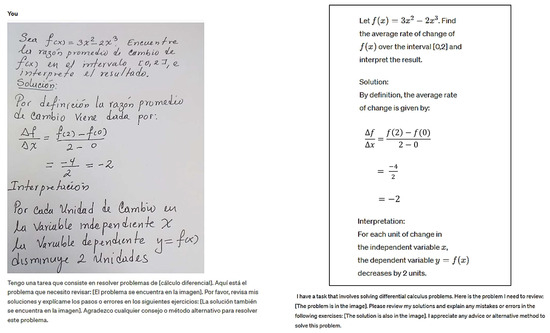 You
Sea f(x) = 3x² - 2x³ Encuentre
la razón promedio de cambio de
f(x) en el intervalo [0,2], e
interprete el resultado.
Solución:
Por definición la razón promedio
de cambio viene dada por:
Δf/Δx = f(2) - f(0) / 2 - 0
= -4/2 = -2
Interpretación
Por cada Unidad de Cambio en
la variable independiente X
la Variable dependiente y = f(x)
disminuye 2 Unidades
Tengo una tarea que consiste en resolver problemas de [cálculo diferencial]. Aquí está el
problema que necesito revisar: [El problema se encuentra en la imagen]. Por favor, revisa mis
soluciones y explícame los pasos o errores en los siguientes ejercicios: [La solución también
se encuentra en la imagen]. Agradezco cualquier consejo o método alternativo para resolver
este problema.
Let f(x) = 3x² − 2x³. Find
the average rate of change of
f(x) over the interval [0,2] and
interpret the result.
Solution:
By definition, the average rate
of change is given by:
Δf/Δx = f(2) − f(0) / 2 − 0
= −4/2
= −2
Interpretation:
For each unit of change in
the independent variable x,
the dependent variable y = f(x)
decreases by 2 units.
I have a task that involves solving differential calculus problems. Here is the problem I need to review:
[The problem is in the image]. Please review my solutions and explain any mistakes or errors in the
following exercises: [The solution is also in the image]. I appreciate any advice or alternative method to
solve this problem.